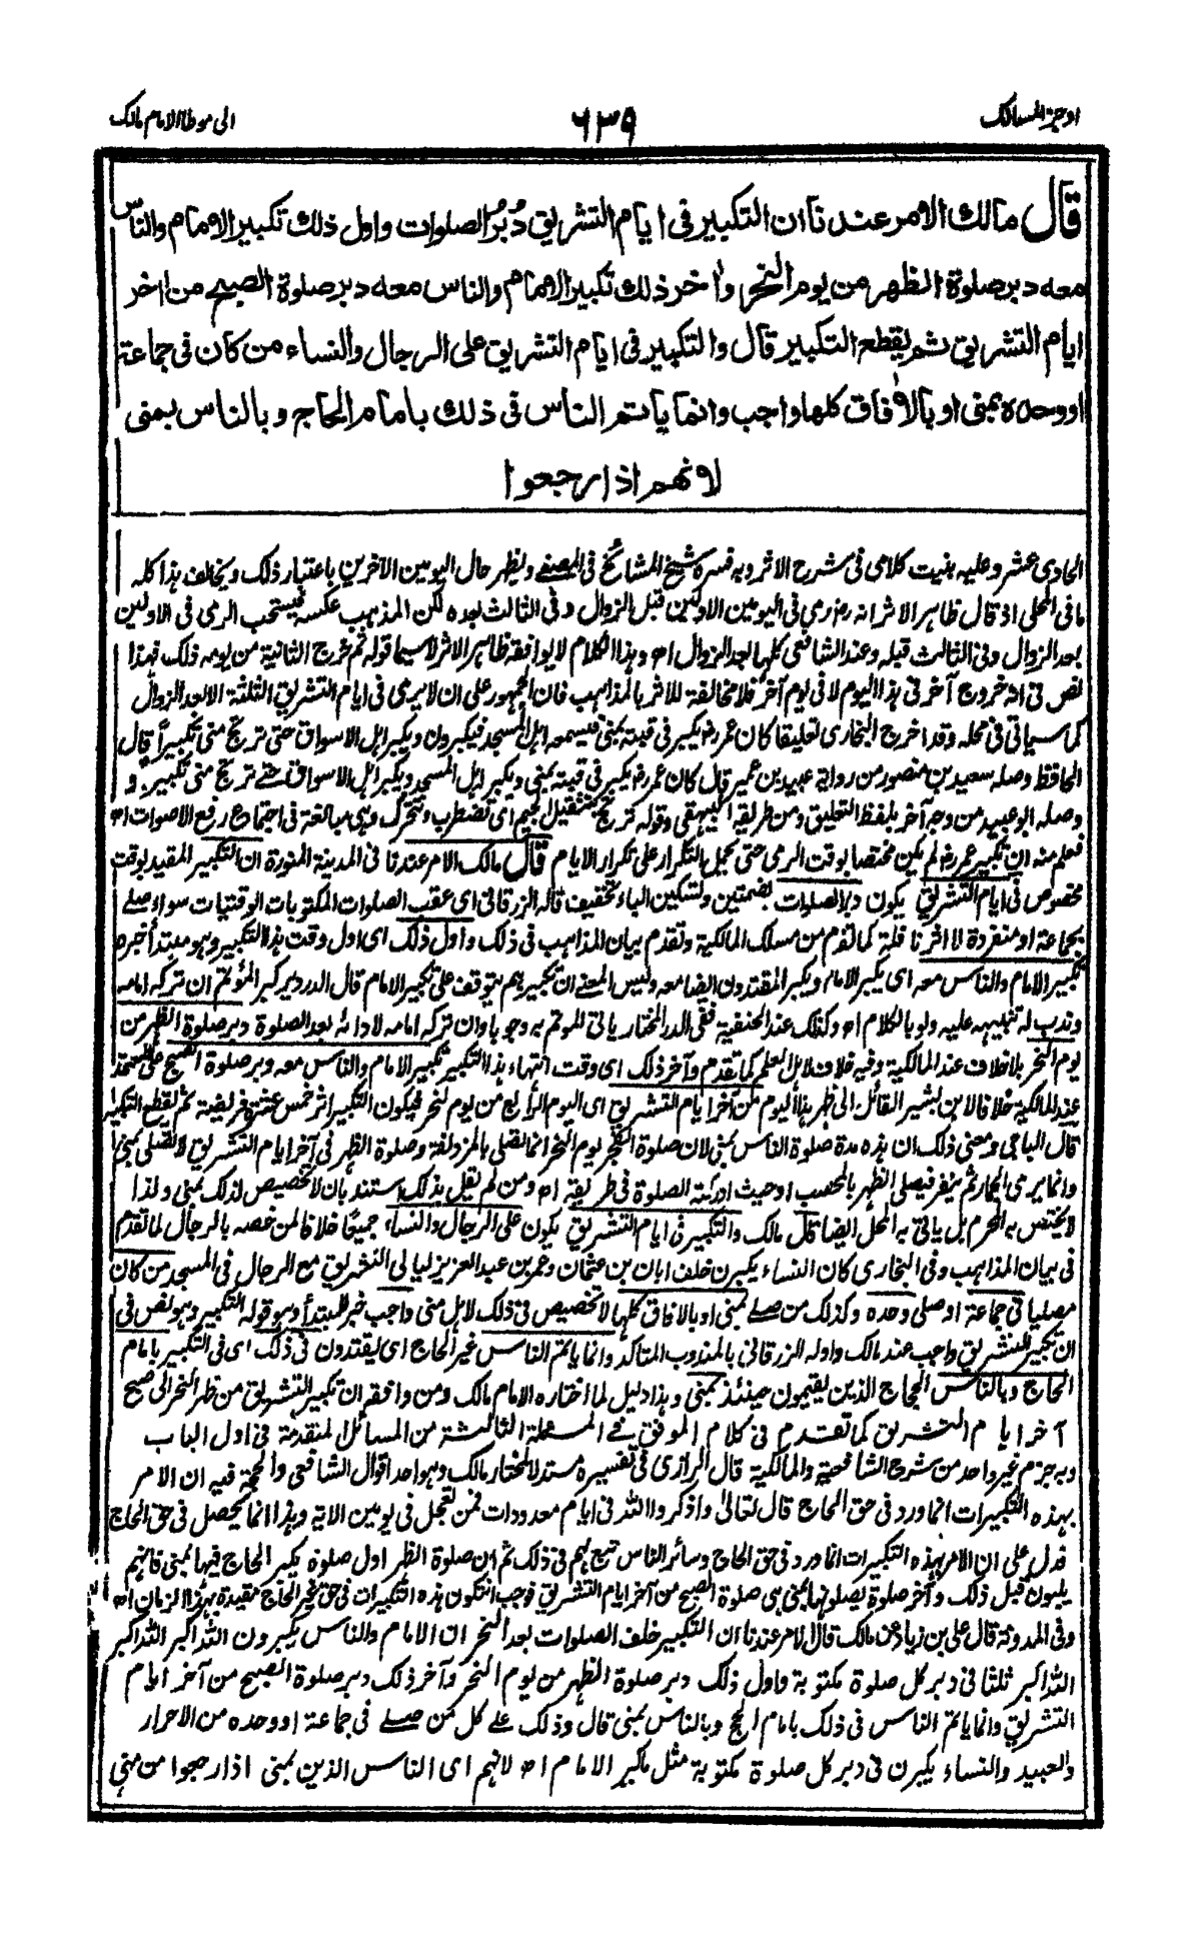 اوجز المسالك
٦٣٩
الى موطا الامام مالك
قال مالك الامر عندنا ان التكبير فى ايام التشريق دُبُر الصلوات واول ذلك تكبير الامام والناس
معه دبر صلوة الظهر من يوم النحر واٰخر ذلك تكبير الامام والناس معه دبر صلوة الصبح من اٰخر
ايام التشريق ثم يقطع التكبير قال والتكبير فى ايام التشريق على الرجال والنساء من كان فى جماعة
او وحده بمنى او بالاٰفاق كلها واجب وانما ياتم الناس فى ذلك بامام الحاج وبالناس بمنى
لانهم اذا رجعوا
الحادى عشر وعليه بنيت كلامى فى شرح الاثر وبه فسره شيخ المشائخ فى المصفى ولينظر حال اليومين الآخرين باعتبار ذلك ويخالف هذا كله
ما فى المحلى اذ قال ظاهر الاثر انه رمى فى اليومين الاولين قبل الزوال وفى الثالث بعده لكن المذهب عكسه فيستحب الرمى فى الاولين
بعد الزوال وفى الثالث قبله وعند الشافعى كلها بعد الزوال اه وهذا الكلام لا يوافقه ظاهر الاثر لاسيما قوله ثم خرج الثانية من يومه ذلك فهذا
نص فى انه خروج آخر فى هذا اليوم لا فى يوم آخر فلا مخالفة للاثر بالمذاهب فان الجمهور على ان لا يرمى فى ايام التشريق الثلثة الا بعد الزوال
كما سياتى فى محله وقد اخرج البخارى تعليقا كان عمر رض يكبر فى قبته بمنى فيسمعه اهل المسجد فيكبرون ويكبر اهل الاسواق حتى ترتج منى تكبيراً قال
الحافظ وصله سعيد بن منصور من رواية عبيد بن عمير قال كان عمر رض يكبر فى قبته بمنى ويكبر اهل المسجد ويكبر اهل الاسواق حتى ترتج منى تكبيرا و
وصله ابو عبيد من وجه آخر بلفظ التعليق ومن طريقه البيهقى وقوله ترتج بتثقيل الجيم اى تضطرب وتتحرك وهى مبالغة فى اجتماع رفع الاصوات اه
فعلم منه ان تكبير عمر رض لم يكن مختصا بوقت الرمى حتى يحمل بالتكرار على تكرار الايام قال مالك الامر عندنا فى المدينة المنورة ان التكبير المقيد بوقت
مخصوص فى ايام التشريق يكون دبر الصلوات بضمتين وتسكين الباء تخفيف قاله الزرقانى اى عقب الصلوات المكتوبات الوقتيات سواء صلى
بجماعة او منفردة لا اثر نافلة كما تقدم من مسلك المالكية وتقدم بيان المذاهب فى ذلك واول ذلك اى اول وقت هذا التكبير وهو مبتدأ خبره
تكبير الامام والناس معه اى يكبر الامام ويكبر المقتدون ايضا معه وليس المعنى ان تكبيرهم يتوقف على تكبير الامام قال الدردير كبر المؤتم ان تركه امامه
وندب له تنبيهه عليه ولو بالكلام اه وكذلك عند الحنفية ففى الدر المختار ياتى المؤتم به وجوبا وان تركه امامه لادائه بعد الصلوة دبر صلوة الظهر من
يوم النحر بلا خلاف عند المالكية وفيه خلاف لاهل العلم كما تقدم وآخر ذلك اى وقت انتهاء هذا التكبير تكبير الامام والناس معه دبر صلوة الصبح على المعتمد
عند المالكية خلافا لابن بشير القائل الى ظهر هذا اليوم من آخر ايام التشريق اى اليوم الرابع من يوم النحر فيكون التكبير اثر خمس عشرة فريضة ثم يقطع التكبير
قال الباجى ومعنى ذلك ان هذه مدة صلوة الناس بمنى لان صلوة الفجر يوم النحر انما تصلى بالمزدلفة وصلوة الظهر فى آخر ايام التشريق لا تصلى بمنى
وانما يرمى الجمار ثم ينفر فيصلى الظهر بالمحصب او حيث ادركته الصلوة فى طريقه اه ومن لم يقل بذلك استند بان لا تخصيص لذلك بمنى ولذا
لا يختص به المحرم بل ياتى به المحل ايضا قال مالك والتكبير فى ايام التشريق يكون على الرجال والنساء جميعًا خلافا لمن خصه بالرجال لما تقدم
فى بيان المذاهب وفى البخارى كان النساء يكبرن خلف ابان بن عثمان وعمر بن عبد العزيز ليالى التشريق مع الرجال فى المسجد من كان
مصليا فى جماعة او صلى وحده وكذلك من صلى بمنى او بالافاق كلها لا تخصيص فى ذلك لاهل منى واجب خبر للمبتدأ وهو قوله التكبير وهو نص فى
ان تكبير التشريق واجب عند مالك واوله الزرقانى بالمندوب المتاكد وانما ياتم الناس غير الحاج اى يقتدون فى ذلك اى فى التكبير بامام
الحاج وبالناس الحجاج الذين يقيمون حينئذ بمنى وهذا دليل لما اختاره الامام مالك ومن وافقه ان تكبير التشريق من ظهر النحر الى صبح
آخر ايام التشريق كما تقدم فى كلام الموفق فى المسئلة الثالثة من المسائل المتقدمة فى اول الباب
وبه جزم غير واحد من شرح الشافعية والمالكية قال الرازى فى تفسيره مستدلا لمختار مالك وهو احد اقوال الشافعى والحجة فيه ان الامر
بهذه التكبيرات انما ورد فى حق الحاج قال تعالى واذكروا الله فى ايام معدودات فمن تعجل فى يومين الاية وهذا انما يحصل فى حق الحاج
فدل على ان الامر بهذه التكبيرات انما ورد فى حق الحاج وسائر الناس تبع لهم فى ذلك ثم ان صلوة الظهر اول صلوة يكبر الحاج فيها بمنى فانهم
يلبون قبل ذلك وآخر صلوة يصلونها بمنى هى صلوة الصبح من آخر ايام التشريق فوجب ان تكون هذه التكبيرات فى حق غير الحاج مقيدة بهذا الزمان اه
وفى المدونة قال على بن زياد عن مالك قال الامر عندنا ان التكبير خلف الصلوات بعد النحر ان الامام والناس يكبرون الله اكبر الله اكبر
الله اكبر ثلثا فى دبر كل صلوة مكتوبة واول ذلك دبر صلوة الظهر من يوم النحر وآخر ذلك دبر صلوة الصبح من آخر ايام
التشريق وانما ياتم الناس فى ذلك بامام الحج وبالناس بمنى قال وذلك على كل من صلى فى جماعة او وحده من الاحرار
والعبيد والنساء يكبرن فى دبر كل صلوة مكتوبة مثل ما يكبر الامام اه لانهم اى الناس الذين بمنى اذا رجعوا من منى